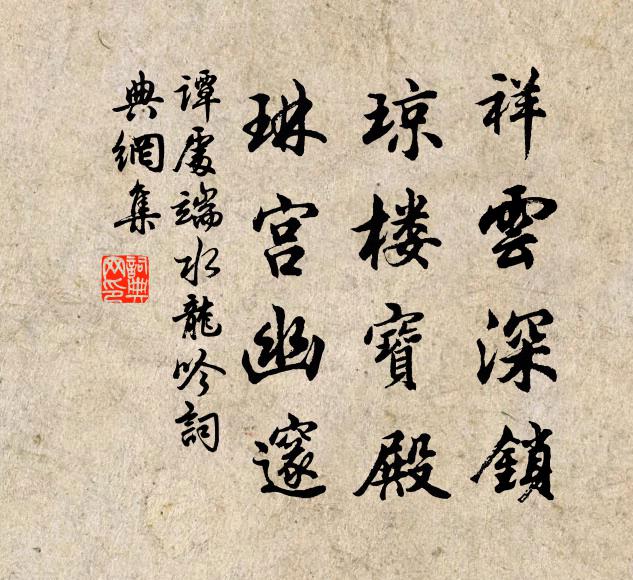 祥雲深鎖
琼楼寶殿
琳宫幽邃
谭處端水龍吟詞
典網集
詞典网印